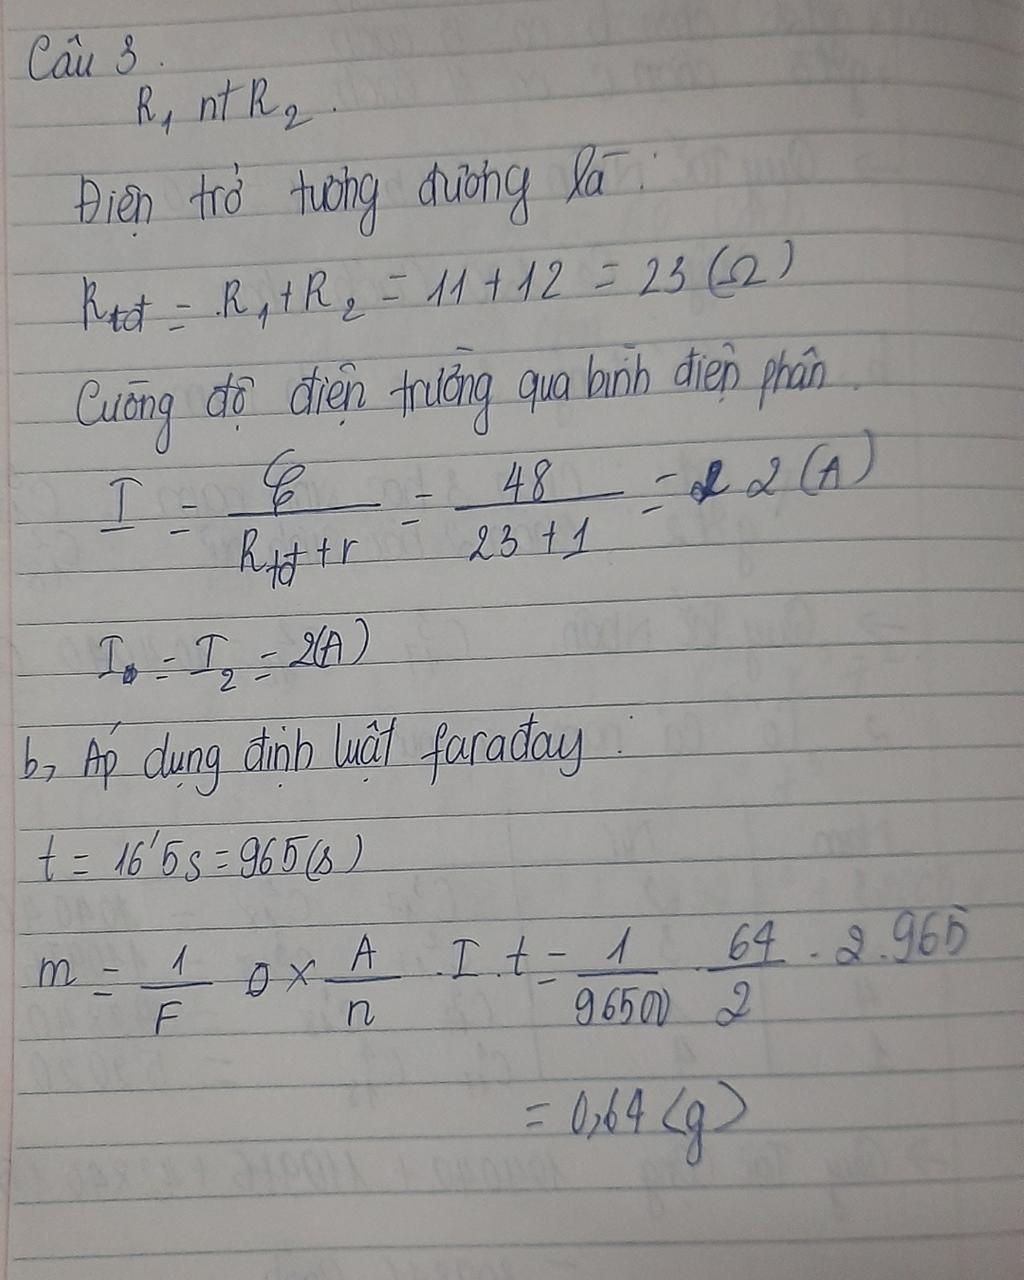 Câu 3.
R₁ nt R₂.
Điện trở tương đương là:
Rtđ = R₁ + R₂ = 11 + 12 = 23 (Ω)
Cường độ điện trường qua bình điện phân.
I = ℰ / (Rtđ + r) = 48 / (23 + 1) = 2 (A)
I = I₂ = 2(A)
b, Áp dụng định luật faraday:
t = 16'5s = 965(s)
m = 1/F × A/n . I . t = 1/96500 . 64/2 . 2 . 965
= 0,64 (g)